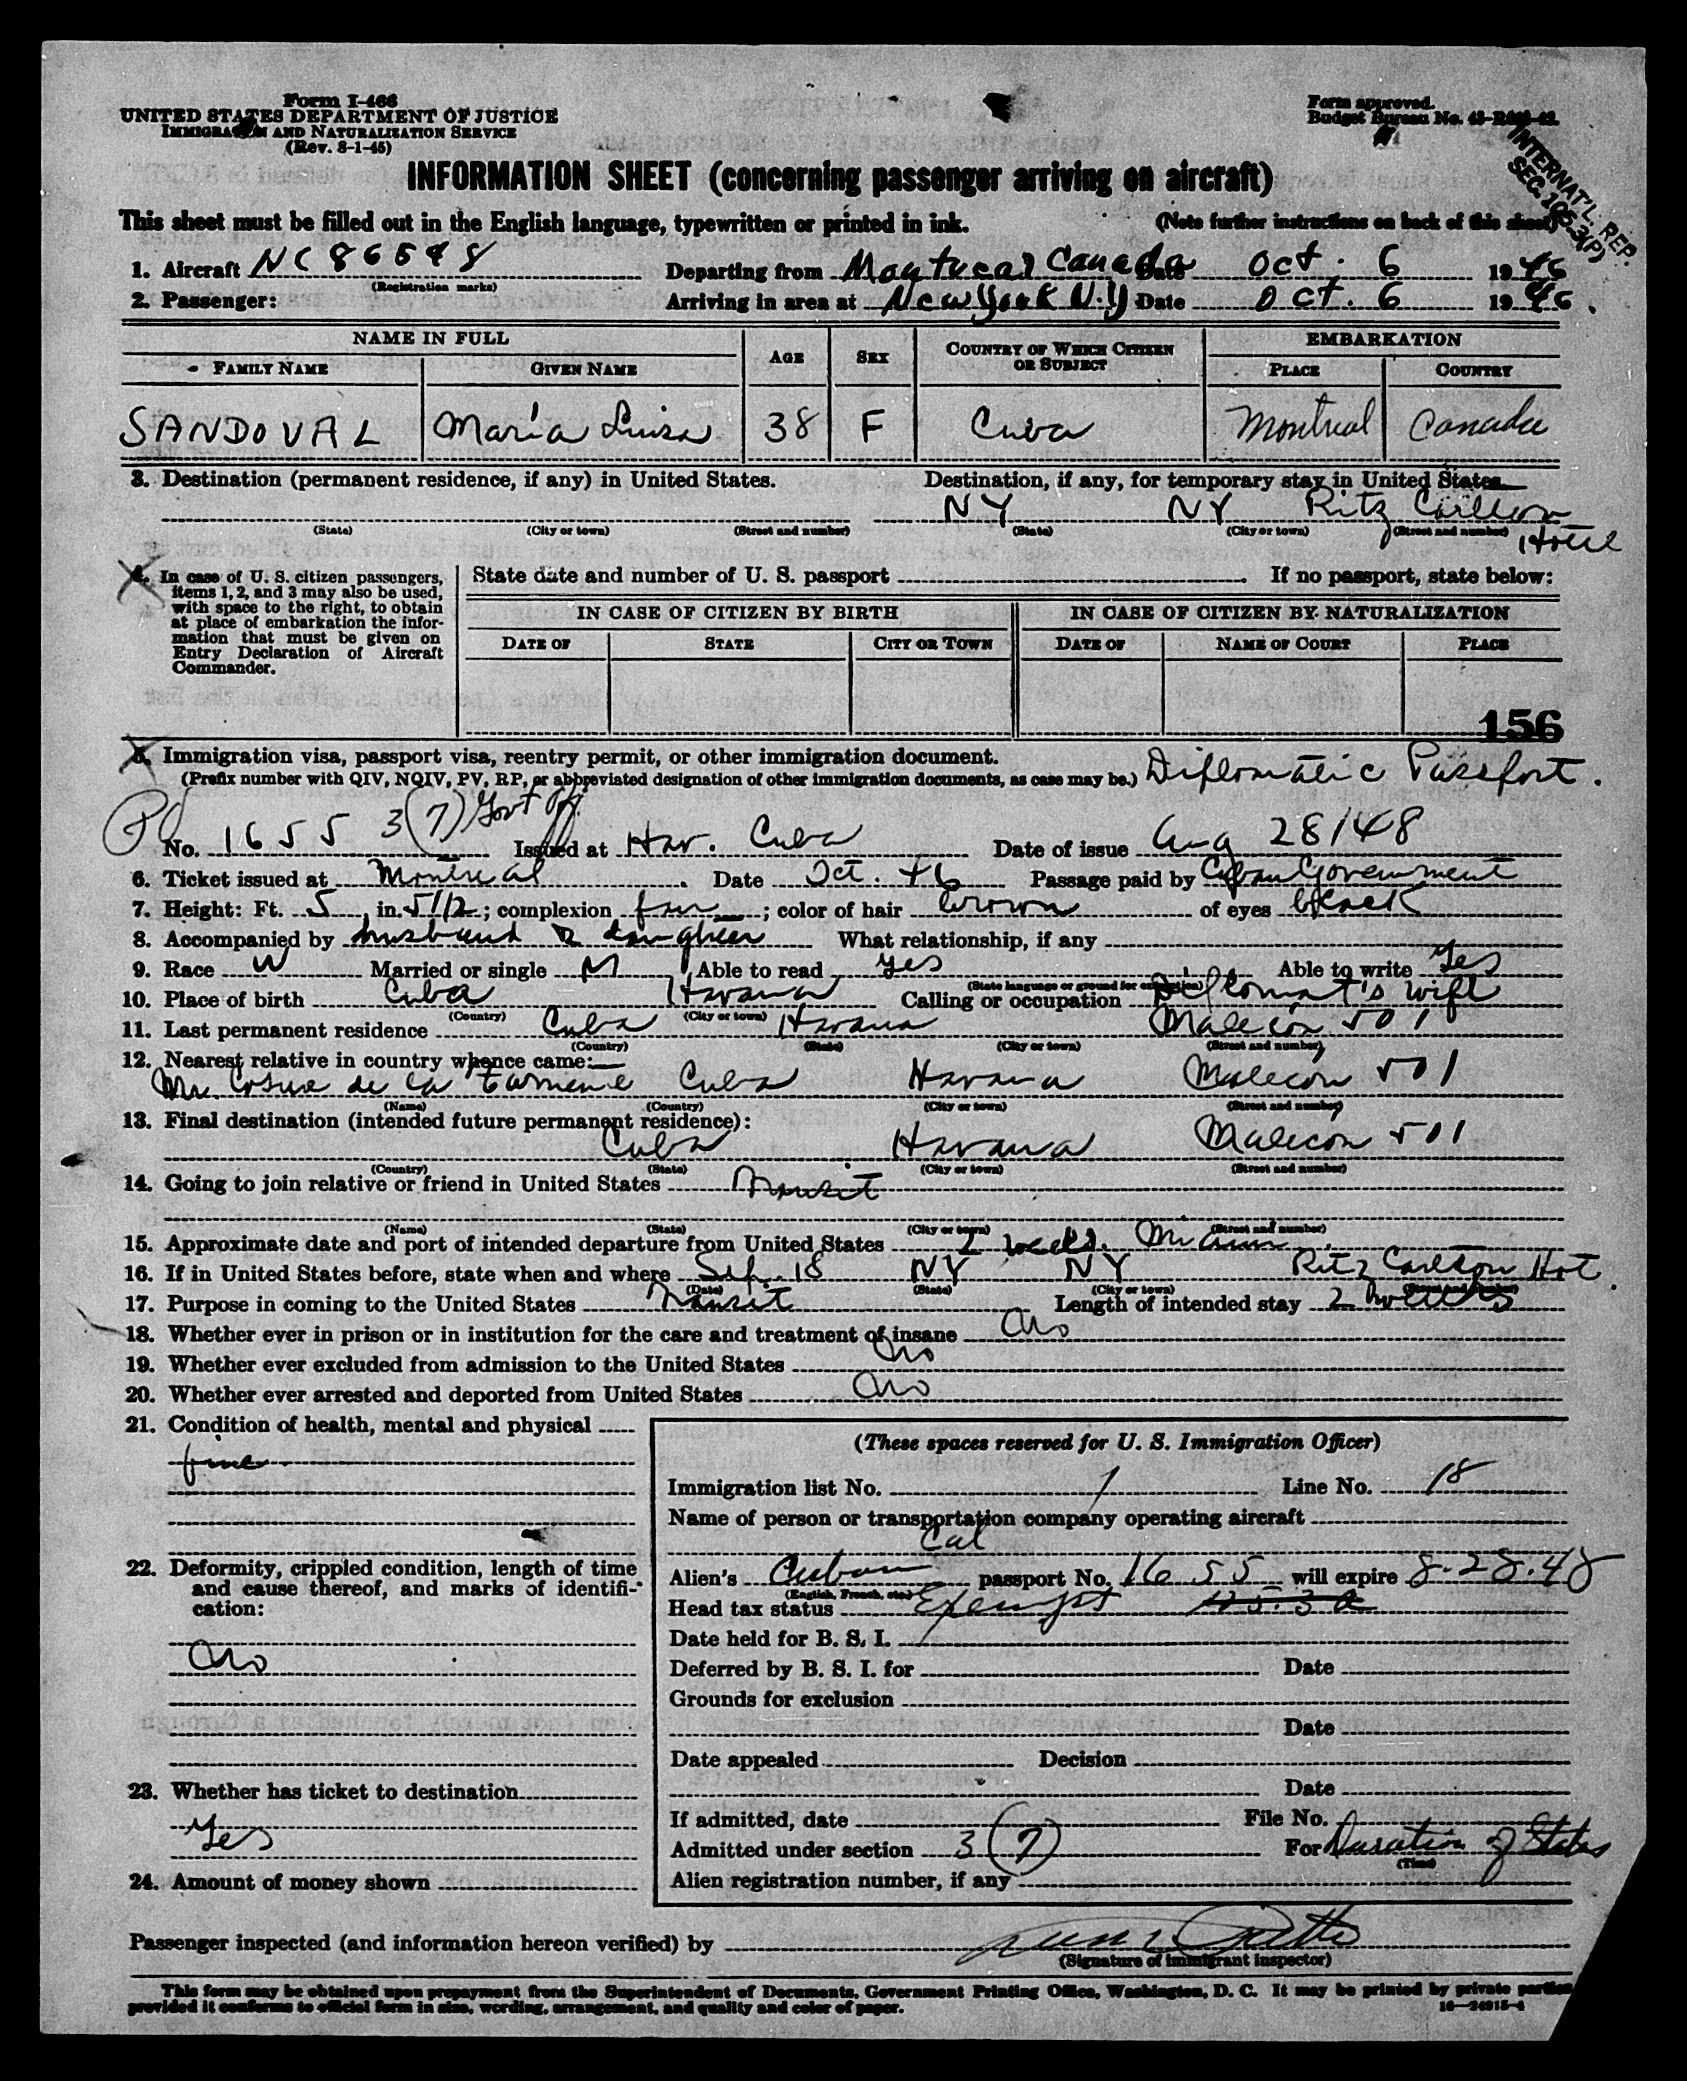 Form I-466
UNITED STATES DEPARTMENT OF JUSTICE
IMMIGRATION AND NATURALIZATION SERVICE
(Rev. 8-1-45)
Form approved.
Budget Bureau No.
INTERNAT'L REP.
SEC. 105-3(P)
INFORMATION SHEET (concerning passenger arriving on aircraft)
This sheet must be filled out in the English language, typewritten or printed in ink. (Note further instructions on back of this sheet)
1. Aircraft NC 86548 Departing from Montreal Canada Date Oct. 6 1946
(Registration marks)
2. Passenger: Arriving in area at New York N.Y Date Oct. 6 1946.
NAME IN FULL AGE SEX COUNTRY OF WHICH CITIZEN OR SUBJECT EMBARKATION
FAMILY NAME GIVEN NAME PLACE COUNTRY
SANDOVAL María Luisa 38 F Cuba Montreal Canada
3. Destination (permanent residence, if any) in United States. Destination, if any, for temporary stay in United States.
NY NY Ritz Carlton Hotel
(State) (City or town) (Street and number) (State) (City or town) (Street and number)
4. In case of U. S. citizen passengers, items 1, 2, and 3 may also be used, with space to the right, to obtain at place of embarkation the information that must be given on Entry Declaration of Aircraft Commander.
State date and number of U. S. passport If no passport, state below:
IN CASE OF CITIZEN BY BIRTH IN CASE OF CITIZEN BY NATURALIZATION
DATE OF STATE CITY OR TOWN DATE OF NAME OF COURT PLACE
156
5. Immigration visa, passport visa, reentry permit, or other immigration document.
(Prefix number with QIV, NQIV, PV, RP, or abbreviated designation of other immigration documents, as case may be.) Diplomatic Passport.
3(7) Govt Off.
No. 1655 Issued at Hav. Cuba Date of issue Aug 28/48
6. Ticket issued at Montreal Date Oct. 46 Passage paid by Cuban Government
7. Height: Ft. 5 in. 5 1/2; complexion fair; color of hair brown of eyes black
8. Accompanied by husband & daughter What relationship, if any
9. Race W Married or single M Able to read yes Able to write yes
(State language or ground for exemption)
10. Place of birth Cuba Havana Calling or occupation Diplomat's wife
(Country) (City or town)
11. Last permanent residence Cuba Havana Malecón 501
(Country) (State) (City or town) (Street and number)
12. Nearest relative in country whence came:
Mr. Cosme de la Torriente Cuba Havana Malecón 501
(Name) (Country) (City or town) (Street and number)
13. Final destination (intended future permanent residence):
Cuba Havana Malecón 501
(Country) (State) (City or town) (Street and number)
14. Going to join relative or friend in United States Transit
(Name) (State) (City or town) (Street and number)
15. Approximate date and port of intended departure from United States 2 weeks. Miami
16. If in United States before, state when and where Sep. 18 NY NY Ritz Carlton Hot.
(Date) (State) (City or town) (Street and number)
17. Purpose in coming to the United States Transit Length of intended stay 2 weeks
18. Whether ever in prison or in institution for the care and treatment of insane No
19. Whether ever excluded from admission to the United States No
20. Whether ever arrested and deported from United States No
21. Condition of health, mental and physical
fine
22. Deformity, crippled condition, length of time and cause thereof, and marks of identification:
No
23. Whether has ticket to destination
Yes
24. Amount of money shown
(These spaces reserved for U. S. Immigration Officer)
Immigration list No. 1 Line No. 18
Name of person or transportation company operating aircraft
Cal
Alien's Cuban passport No. 1655 will expire 8-28-48
(English, French, etc.)
Head tax status Exempt
Date held for B. S. I.
Deferred by B. S. I. for Date
Grounds for exclusion
Date
Date appealed Decision
Date
If admitted, date File No.
Admitted under section 3 (7) For Duration of Status
(Time)
Alien registration number, if any
Passenger inspected (and information hereon verified) by
(Signature of immigrant inspector)
This form may be obtained upon prepayment from the Superintendent of Documents, Government Printing Office, Washington, D. C. It may be printed by private parties
provided it conforms to official form in size, wording, arrangement, and quality and color of paper.
16—24915-4